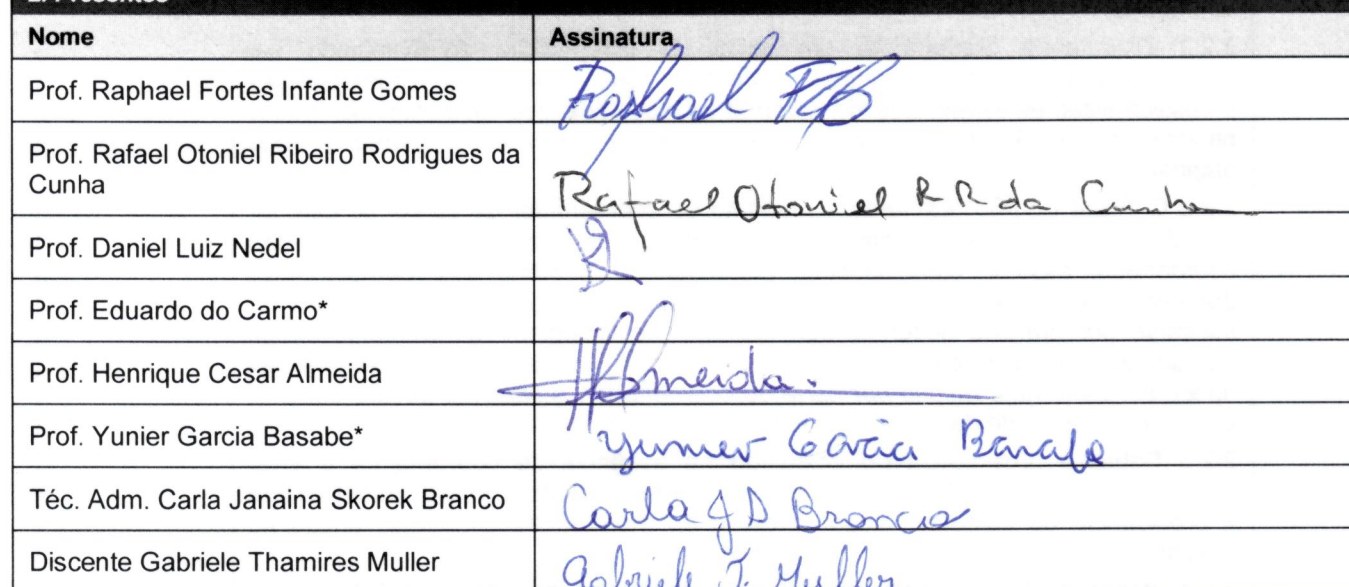 2. Presentes
Nome Assinatura
Prof. Raphael Fortes Infante Gomes Raphael
Prof. Rafael Otoniel Ribeiro Rodrigues da
Cunha Rafael Otoniel R R da Cunha
Prof. Daniel Luiz Nedel
Prof. Eduardo do Carmo*
Prof. Henrique Cesar Almeida HCAlmeida.
Prof. Yunier Garcia Basabe* Yunier Garcia Basabe
Téc. Adm. Carla Janaina Skorek Branco Carla J S Branco
Discente Gabriele Thamires Muller Gabriele T. Muller